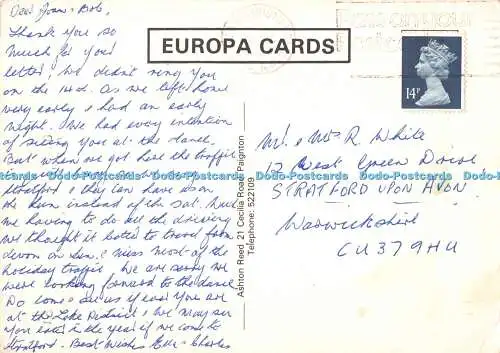 Dear Joan & Bob,
Thank you so
much for your
letter, we didn't ring you
on the 14d. as we left home
very early & had an early
night. We had every intention
of seeing you at the dance.
But when we got here the traffic
Stratford & they can have us on
the Sun instead of the Sat. And
we having to do all the driving
we thought it better to travel from
devon on Sun. & miss most of the
holiday traffic, We are sorry we
were looking forward to the dance
Do come & see us if ever you are
at the Lake District, & We may see
you later in the year if we come to
Stratford. Best Wishes Charles
EUROPA CARDS
Ashton Reed, 21 Cecilia Road, Paignton
Telephone: 522109
14P
Mr. & Mrs R. White
17 West Green Drive
STRATFORD UPON AVON
Warwickshire
CU37 9HU
Dodo-Postcards Dodo-Postcards Dodo-Postcards Dodo-Postcards Dodo-Postcards